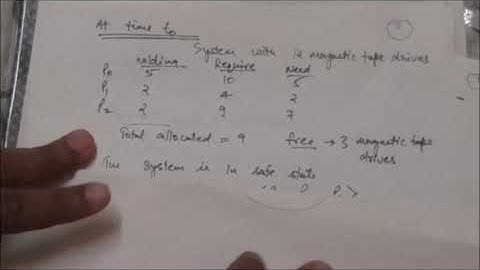 At time to
System with 12 magnetic tape drives
holding Require Need
P0 5 10 5
P1 2 4 2
P2 2 9 7
Total allocated = 9 free → 3 magnetic tape
drives
The System is in safe state